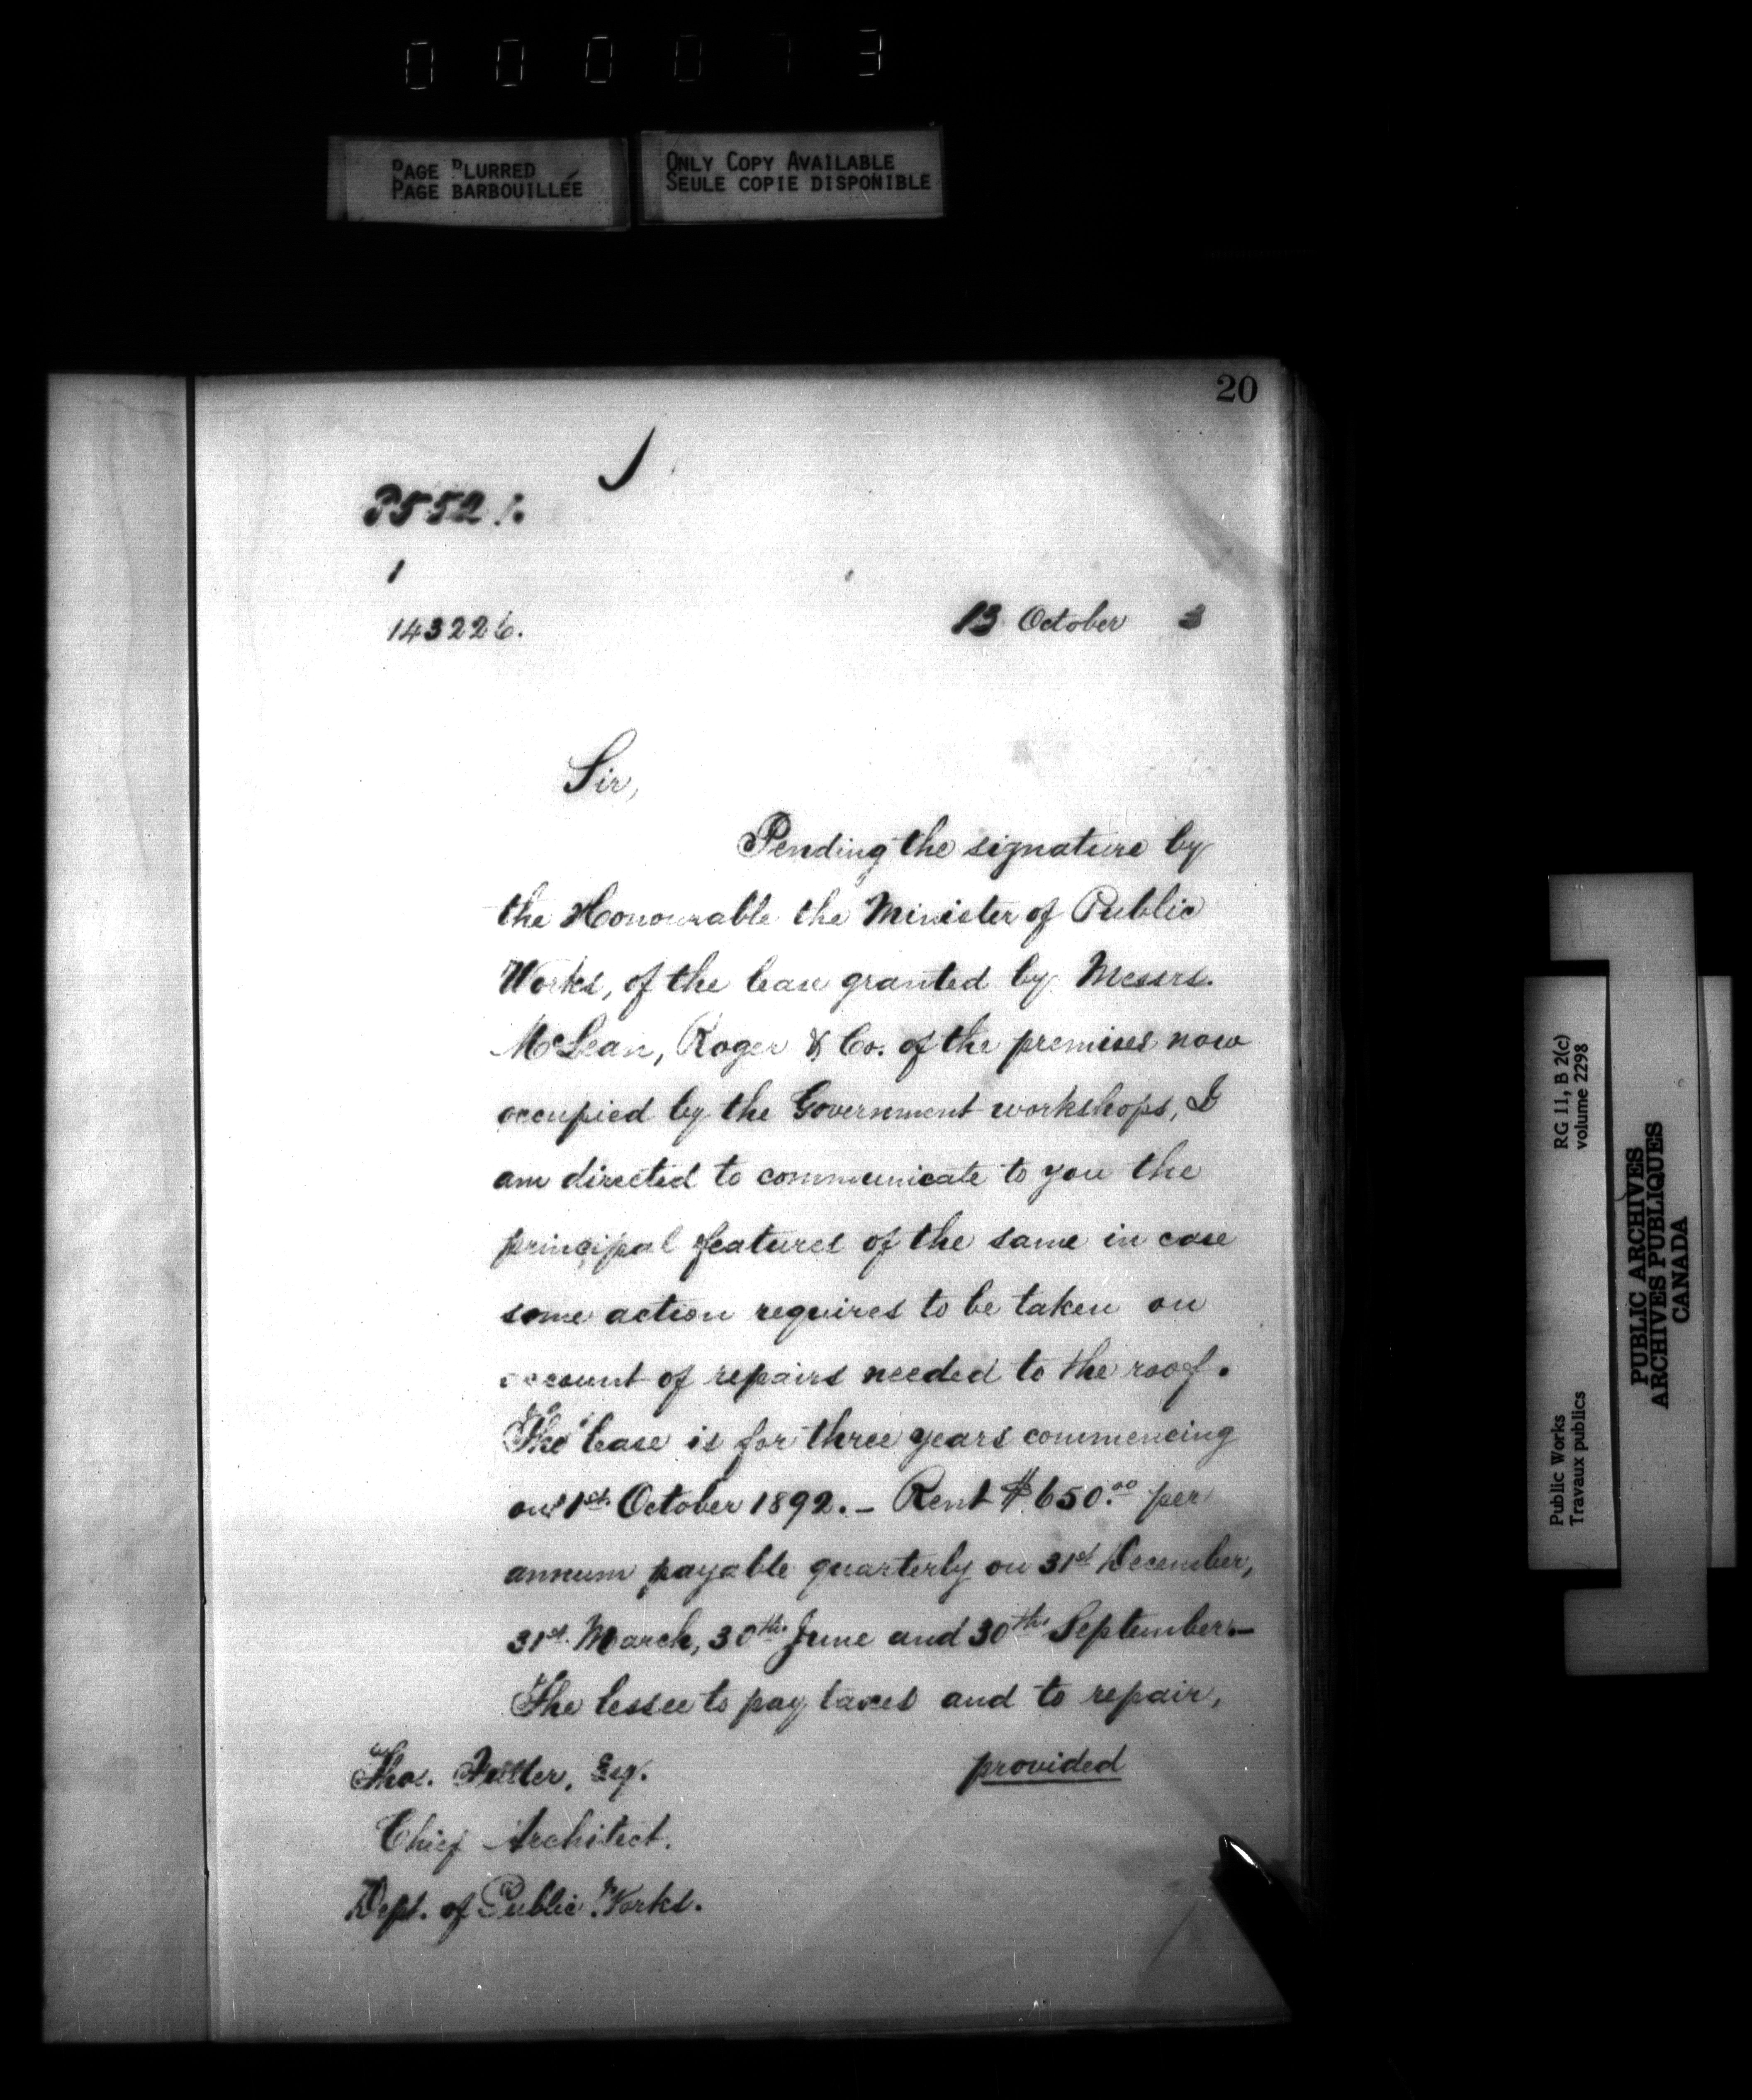 0 0 0 0 7 3
PAGE BLURRED
PAGE BARBOUILLÉE
ONLY COPY AVAILABLE
SEULE COPIE DISPONIBLE
20
3552
1
143226.
13 October 3
Sir,
Pending the signature by
the Honourable the Minister of Public
Works, of the lease granted by Messrs.
McLean, Roger & Co. of the premises now
occupied by the Government workshops, I
am directed to communicate to you the
principal features of the same in case
some action requires to be taken on
account of repairs needed to the roof.
The lease is for three years commencing
on 1st. October 1892. – Rent $650.00 per
annum payable quarterly on 31st December,
31st. March, 30th. June and 30th. September. –
The lessee to pay taxes and to repair,
provided
Tho. Fuller, Esq.
Chief Architect.
Dept. of Public Works.
RG 11, B 2(c)
volume 2298
Public Works
Travaux publics
PUBLIC ARCHIVES
ARCHIVES PUBLIQUES
CANADA